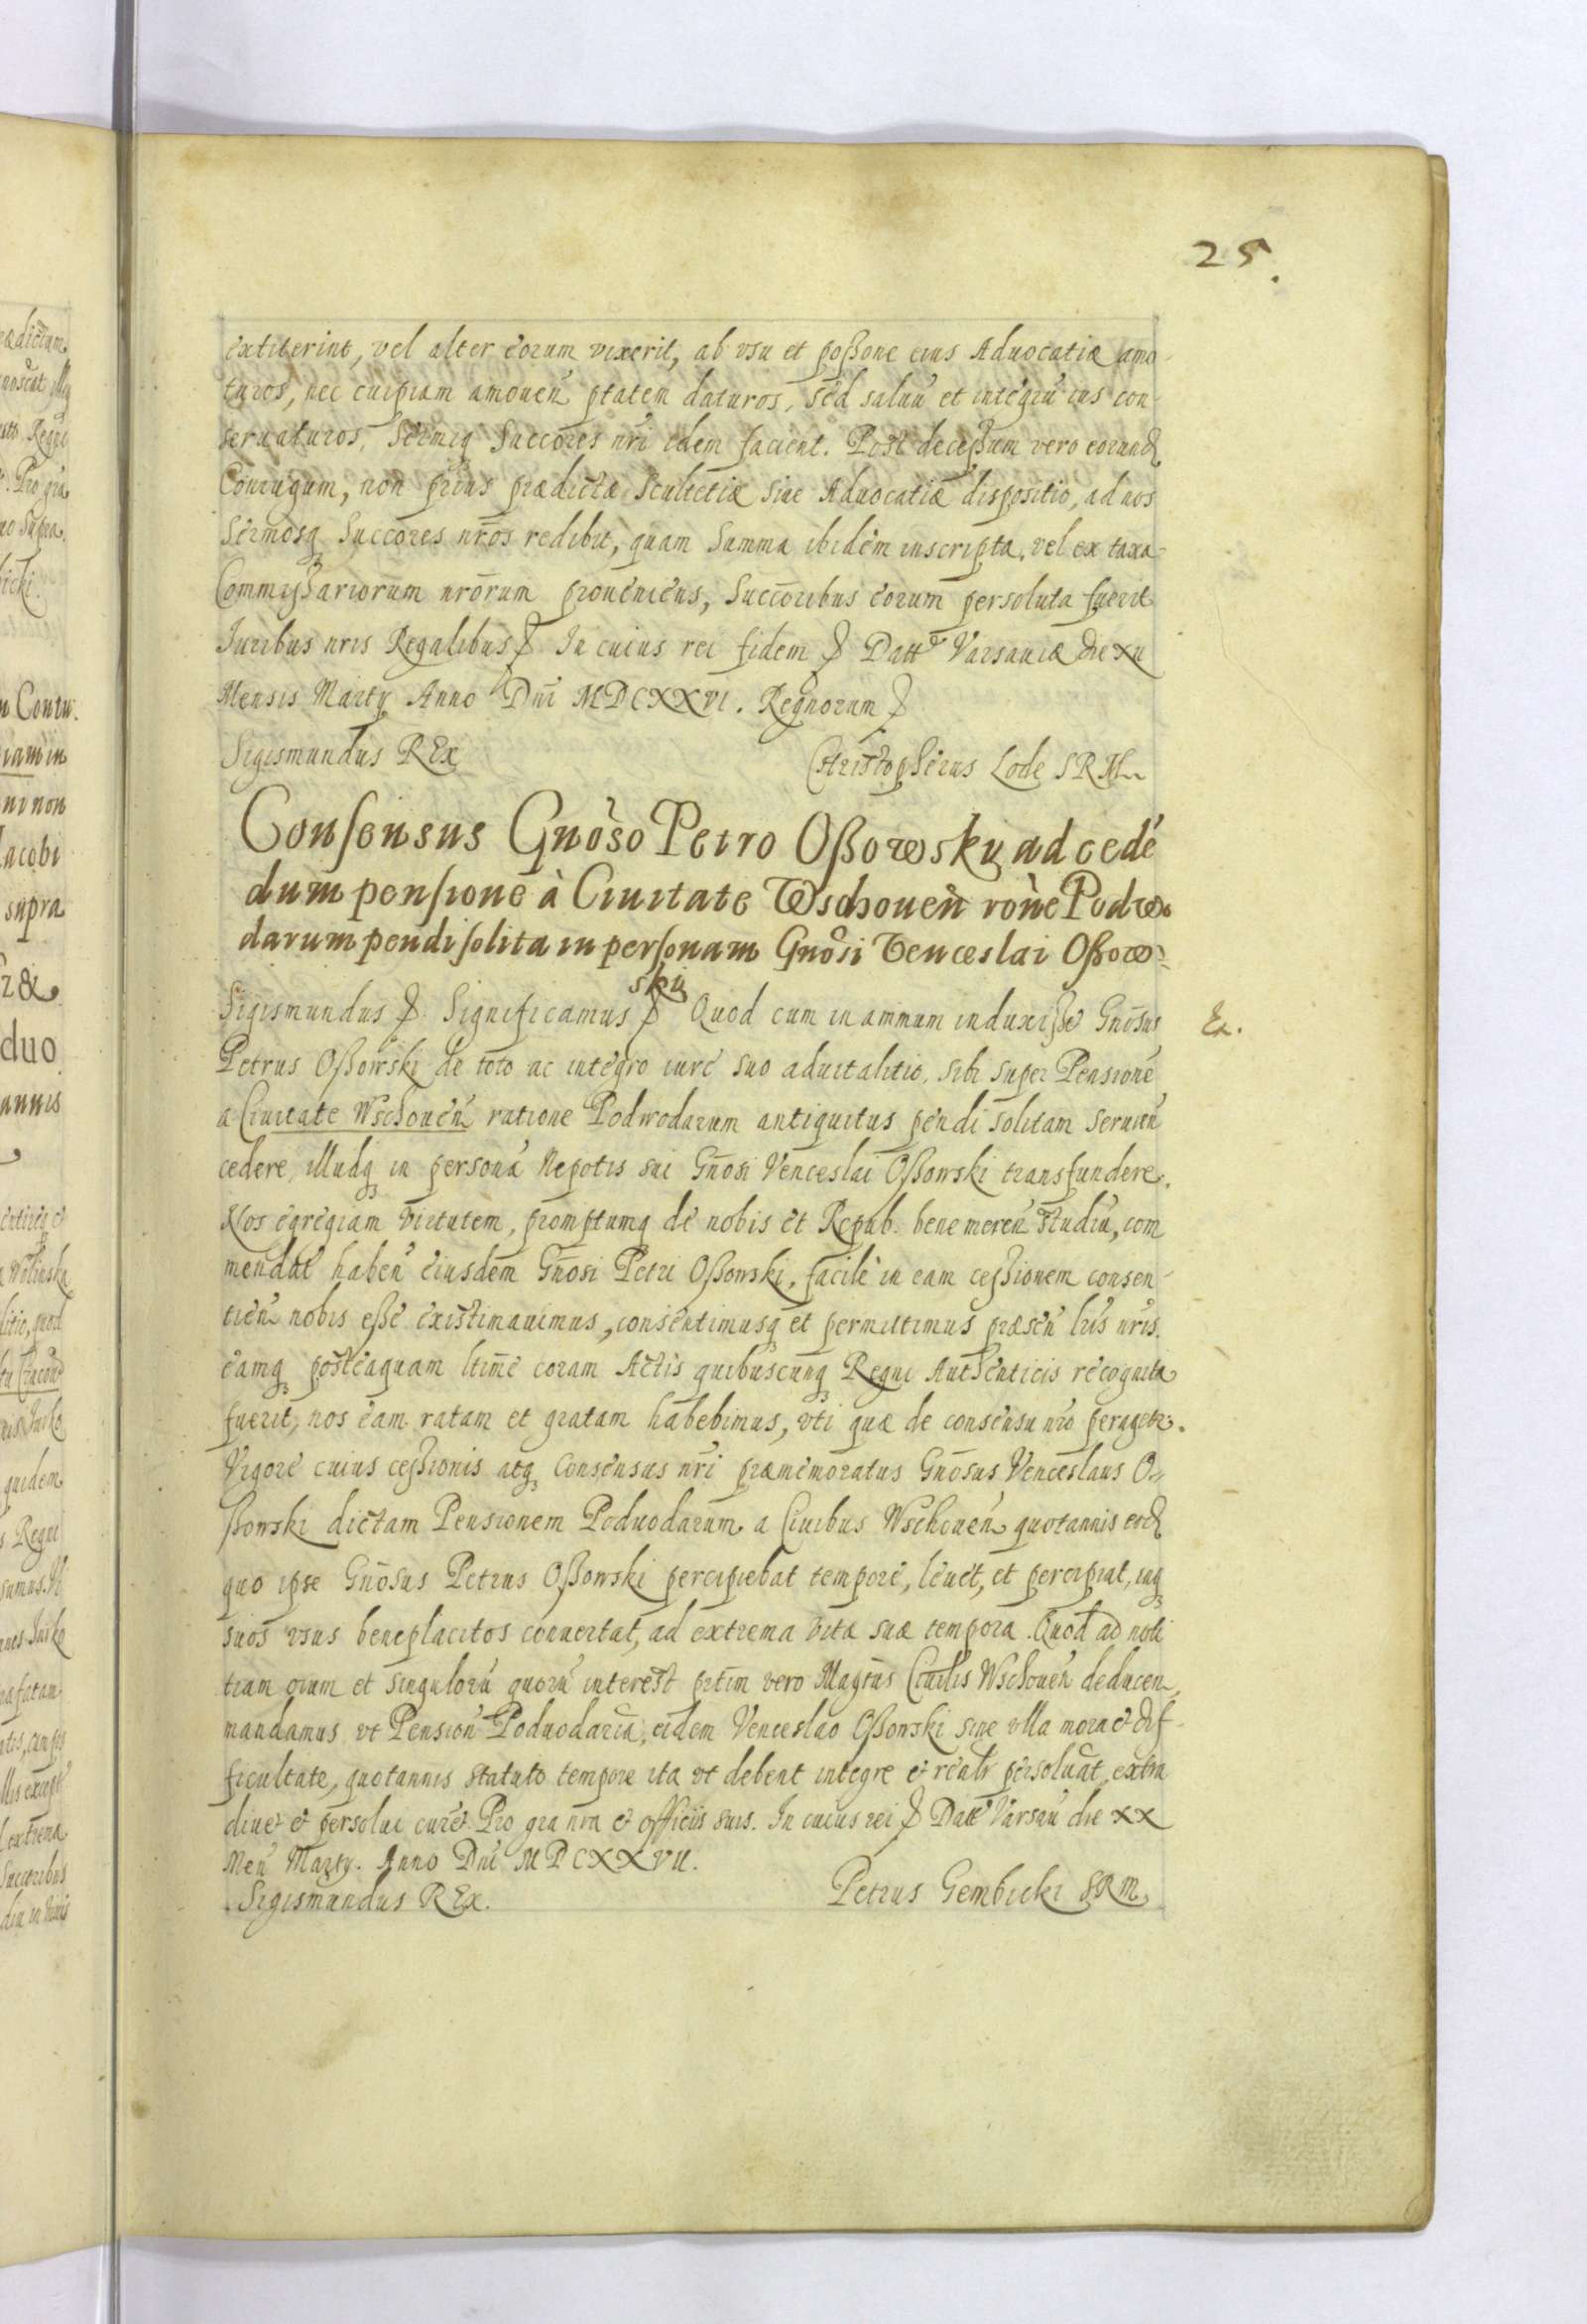 25.
extiterint, vel alter eorum vixerit, ab vsu et poßone eius Aduocatiæ amo-
turos, nec cuipiam amouen̄ ptatem daturos, sed saluū et integrū ius con-
seruaturos, Sermiq Succores nr̄i idem facient. Post deceßum vero eorund
Coniugum, non prius prædictæ Scultetiæ siue Aduocatiæ dispositio, ad nos
Sermosq Succores nr̄os redibit, quam Summa ibidem inscripta, vel ex taxa
Commißariorum nr̄orum proueniens, Succoribus eorum persoluta fuerit
Iuribus nris Regalibus In cuius rei fidem Datt Varsauiæ die XII
Mensis Martij Anno Dni MDCXXVI. Regnorum
Sigismundus REx
Christopherus Lode SRM
Consensus Gnoso Petro Oßowskij ad cedē
dum pensionē à Ciuitate Wschouen̄ rōne Podwo
darum pendi solita in personam Gnosi Venceslai Oßow=
skij
Sigismundus Significamus Quod cum in animum induxiße Gnōsus
Petrus Oßowski de toto ac integro iure suo aduitalitio, sibi super Pensionē
a Ciuitate Wschouen̄ ratione Podwodarum antiquitus pendi solitam seruien̄
cedere, illudq in personā Nepotis sui Gnōsi Venceslai Oßowski transfundere.
Nos egregiam virtutem, promptumq de nobis et Repub. bene meren̄ studiū, com
mendat haben̄ eiusdem Gnōsi Petri Oßowski, facile in eam ceßionem consen-
tien̄ nobis eße existimauimus, consentimusq et permittimus præsen̄ lris nris.
eamq posteaquam ltime coram Actis quibuscunq Regni Authenticis recognita
fuerit, nos eam ratam et gratam habebimus, vti quæ de consensu nro peragetr.
Vigore cuius ceßionis atq Consensus nr̄i præmemoratus Gnōsus Venceslaus O=
ßowski dictam Pensionem Poduodarum a Ciuibus Wschouen̄ quotannis eod
quo ipse Gnōsus Petrus Oßowski percipiebat tempore, leuet, et percipiat, inq
suos vsus beneplacitos conuertat, ad extrema vitæ suæ tempora. Quod ad noti
tiam oium et singulorū quorū interest prtim vero Magrus Ciuilis Wschouen̄ deducen
mandamus vt Pension̄ Poduodariā, eidem Venceslao Oßowski sine vlla mora et dif-
ficultate, quotannis statuto tempore ita vt debent integre et realr persoluāt, extra
diue et persolui curet Pro gra nra et officiis suis. In cuius rei Datt Varsau die XX
Men̄ Martij. Anno Dni MDCXXVII.
Sigismundus REx.
Petrus Gembicki SRM
Ex.